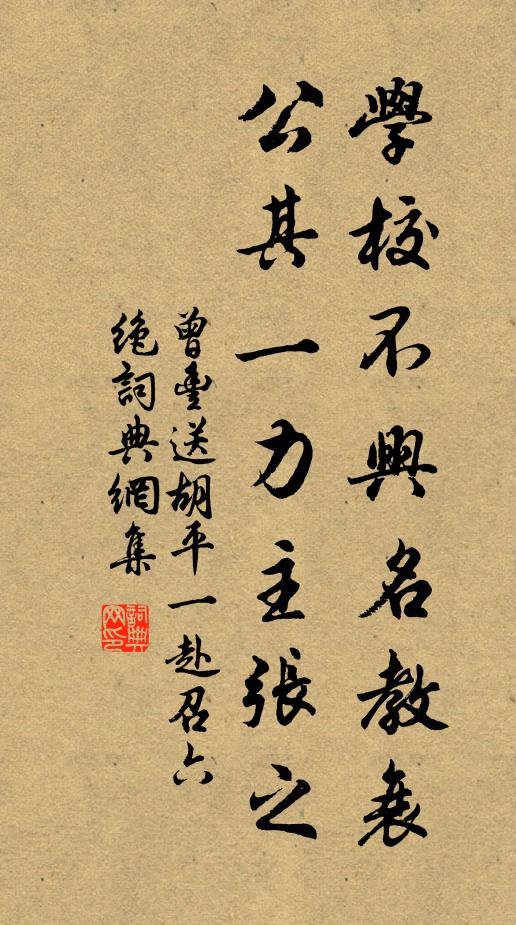 學校不興名教衰
公其一力主張之
曾豐送胡平一赴召六
絶詞典網集
詞典網印